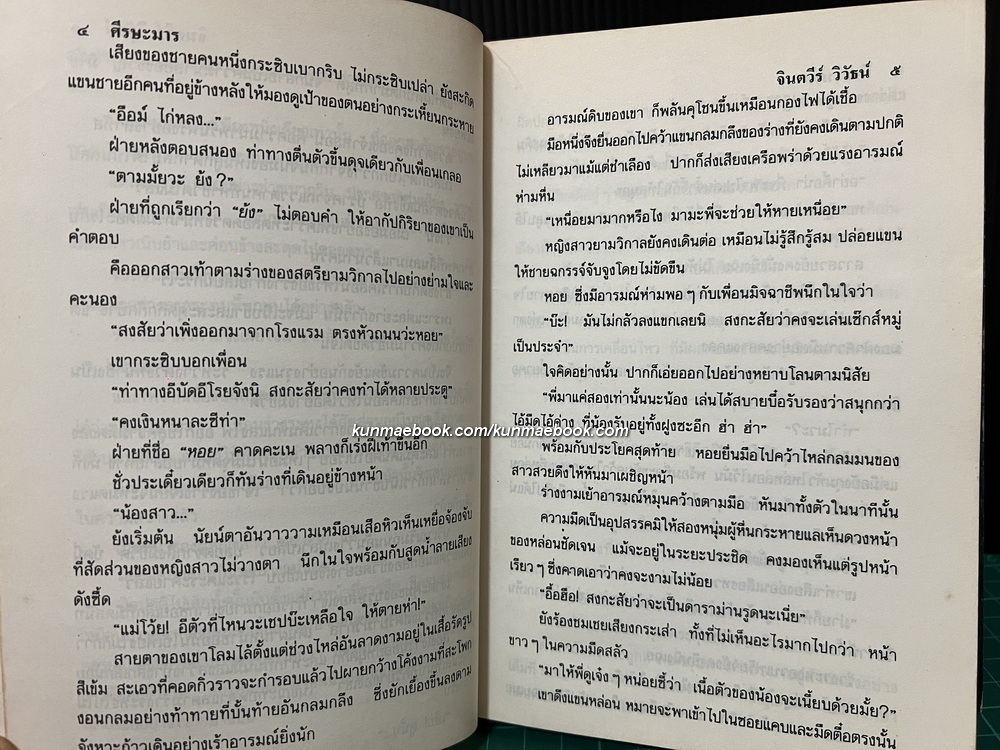 ๔ ศีรษะมาร
เสียงของชายคนหนึ่งกระซิบเบากริบ ไม่กระซิบเปล่า ยังสะกิด
แขนชายอีกคนที่อยู่ข้างหลังให้มองดูเป้าของตนอย่างกระเหี้ยนกระหาย
“อือม์ ไก่หลง...”
ฝ่ายหลังตอบสนอง ท่าทางตื่นตัวขึ้นดุจเดียวกับเพื่อนเกลอ
“ตามมั้ยวะ ยัง?”
ฝ่ายที่ถูกเรียกว่า “ยัง” ไม่ตอบคำ ให้อากัปกิริยาของเขาเป็น
คำตอบ
คือออกสาวเท้าตามร่างของสตรียามวิกาลไปอย่างย่ามใจและ
คะนอง
“สงสัยว่าเพิ่งออกมาจากโรงแรม ตรงหัวถนนว่ะหอย”
เขากระซิบบอกเพื่อน
“ท่าทางอีบัดอีโรยจังนิ สงกะสัยว่าคงทำได้หลายประตู”
“คงเงินหนาละซีท่า”
ฝ่ายที่ชื่อ “หอย” คาดคะเน พลางก็เร่งฝีเท้าขึ้นอีก
ชั่วประเดี๋ยวเดียวก็ทันร่างที่เดินอยู่ข้างหน้า
“น้องสาว...”
ยังเริ่มต้น นัยน์ตาอันวาววามเหมือนเสือหิวเห็นเหยื่อจ้องจับ
ที่สัดส่วนของหญิงสาวไม่วางตา นึกในใจพร้อมกับสูดน้ำลายเสียง
ดังซี้ด
“แม่โว้ย! อีตัวที่ไหนวะเชปบ๊ะเหลือใจ ให้ตายห่า!”
สายตาของเขาโลมไล้ตั้งแต่ช่วงไหล่อันลาดงามอยู่ในเสื้อรัดรูป
สีเข้ม สะเอวที่คอดกิ่วราวจะกำรอบแล้วไปผายกว้างโค้งงามที่สะโพก
งอนกลมอย่างท้าทายที่บั้นท้ายอันกลมกลึง ซึ่งยักเยื้องขึ้นลงตาม
จังหวะก้าวเดินอย่างเร้าอารมณ์ยิ่งนัก
จินตวีร์ วิวัธน์ ๕
อารมณ์ดิบของเขา ก็พลันคุโชนขึ้นเหมือนกองไฟได้เชื้อ
มือหนึ่งจึงยื่นออกไปคว้าแขนกลมกลึงของร่างที่ยังคงเดินตามปกติ
ไม่เหลียวมาแม้แต่ชำเลือง ปากก็ส่งเสียงเครือพร่าด้วยแรงอารมณ์
ห่ามหื่น
“เหนื่อยมามากหรือไง มามะพี่จะช่วยให้หายเหนื่อย”
หญิงสาวยามวิกาลยังคงเดินต่อ เหมือนไม่รู้สึกรู้สม ปล่อยแขน
ให้ชายฉกรรจ์จับจูงโดยไม่ขัดขืน
หอย ซึ่งมีอารมณ์ห่ามพอๆ กับเพื่อนมิจฉาชีพนึกในใจว่า
“บ๊ะ! มันไม่กลัวลงแขกเลยนิ สงกะสัยว่าคงจะเล่นเซ็กส์หมู่
เป็นประจำ”
ใจคิดอย่างนั้น ปากก็เอ่ยออกไปอย่างหยาบโลนตามนิสัย
“พี่มาแค่สองเท่านั้นนะน้อง เล่นได้สบายบื๋อรับรองว่าสนุกกว่า
ไอ้มืดไอ้ค่าง ที่น้องรับอยู่ทั้งฝูงซะอีก ฮ่า ฮ่า”
kunmaebook.com/kunmaebook.com
พร้อมกับประโยคสุดท้าย หอยยื่นมือไปคว้าไหล่กลมมนของ
สาวสวยดึงให้หันมาเผชิญหน้า
ร่างงามเข้าอารมณ์หมุนคว้างตามมือ หันมาทั้งตัวในนาทีนั้น
ความมืดเป็นอุปสรรคมิให้สองหนุ่มผู้หื่นกระหายแลเห็นดวงหน้า
ของหล่อนชัดเจน แม้จะอยู่ในระยะประชิด คงมองเห็นแต่รูปหน้า
เรียวๆ ซึ่งคาดเอาว่าคงจะงามไม่น้อย
“อื้อฮือ! สงกะสัยว่าจะเป็นดาราม่านรูดนะเนี่ย”
ยังร้องชมเชยเสียงกระเส่า ทั้งที่ไม่เห็นอะไรมากไปกว่า หน้า
ขาวๆ ในความมืดสลัว
“มาให้พี่ดูเจ๋งๆ หน่อยซี้ว่า เนื้อตัวของน้องจะเนี้ยบด้วยมั้ย?”
เขาดึงแขนหล่อน หมายจะพาเข้าไปในซอยแคบและมืดตื๋อตรงนั้น